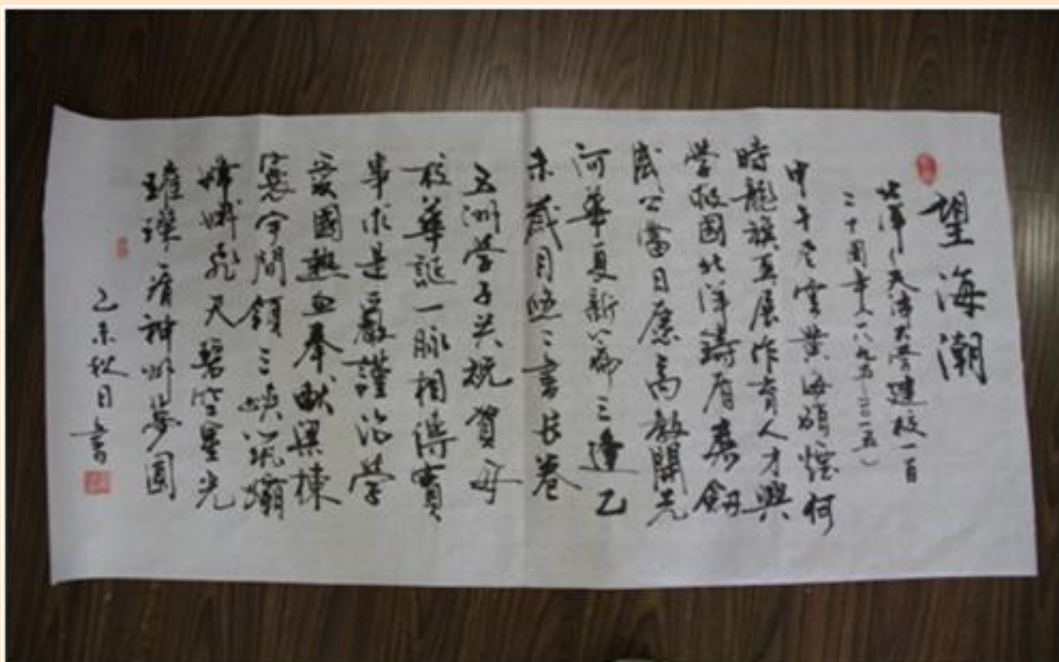 望海潮
北洋—天津大学建校一百
二十周年（一八九五—二〇一五）
甲午风云黄海硝烟何
時龍旗再展作育人才興
学救國北洋鑄盾磨劍
盛公當日應高教開先
河華夏新篇三逢乙
未歲月悠悠書長卷
五洲学子共祝賀母
校華誕一脉相傳實
事求是嚴謹治学
愛國熱血奉献棟
寰宇間領三峡筑壩
嫦娥飛天碧空星光
璀璨神州夢圓
乙未秋日書